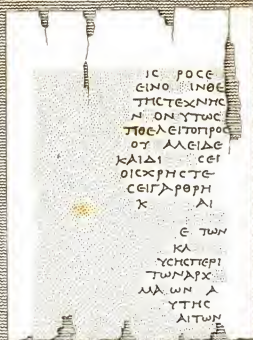 ΙϹ ΡΟϹΕ
ΕΙΝΟ ΙΝΘΕ
ΤΗϹΤΕΧΝΗϹ
Ν ΟΝ ΥΤΩϹ
ΠΘΕΛΕΙΤΟΠΡΟϹ
ΟΥ ΑΛΕΙΔΕ
ΚΑΙΔΙ ϹΕΙ
ΟΙϹΧΡΗϹΤΕ
ϹΕΙΓΑΡΘΡΗ
Χ ΑΙ
Ε ΤΩΝ
ΚΑ
ΥϹΗϹΠΕΡΙ
ΤΩΝΑΡΧ
ΜΑ ΩΝ Α
ΥΤΗϹ
ΑΙΤΩΝ